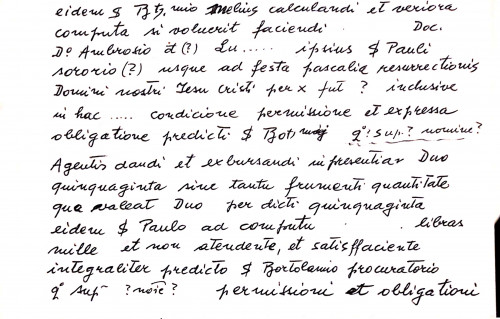 eidem $ Bt, mio melius calculandi et veriora
computa si voluerit faciendi. Doc.
D° Ambrosio à (?) Lu..... ipsius $ Pauli
sororio (?) usque ad festa pascalia resurrectionis
Domini nostri Iesu Cristi per x fut ? inclusive
in hac ..... condicione permissione et expressa
obligatione predicti $ Bot, q° sup.? nomine?
Agentis dandi et exbursandi in presentiar Duo
quinquaginta sine tantu frumenti quantitate
qua valeat Duo per dicti quinquaginta
eidem $ Paulo ad computu libras
mille et non atendente, et satisffaciente
integraliter predicto $ Bortolamio procuratorio
q° sup ? noie ? permissioni et obligationi